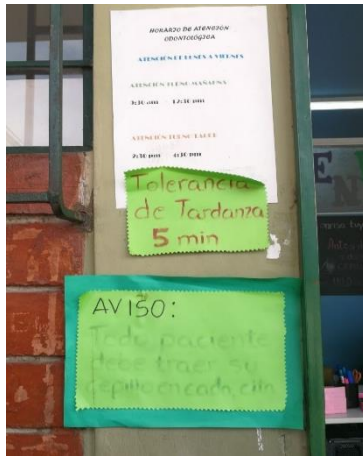 HORARIO DE ATENCION
ODONTOLOGICA
ATENCIÓN DE LUNES A VIERNES
ATENCIÓN TURNO MAÑANA
ATENCIÓN TURNO TARDE
Tolerancia
de Tardanza
5 min
AVISO:
Todo paciente
debe traer su
cepillo en cada cita